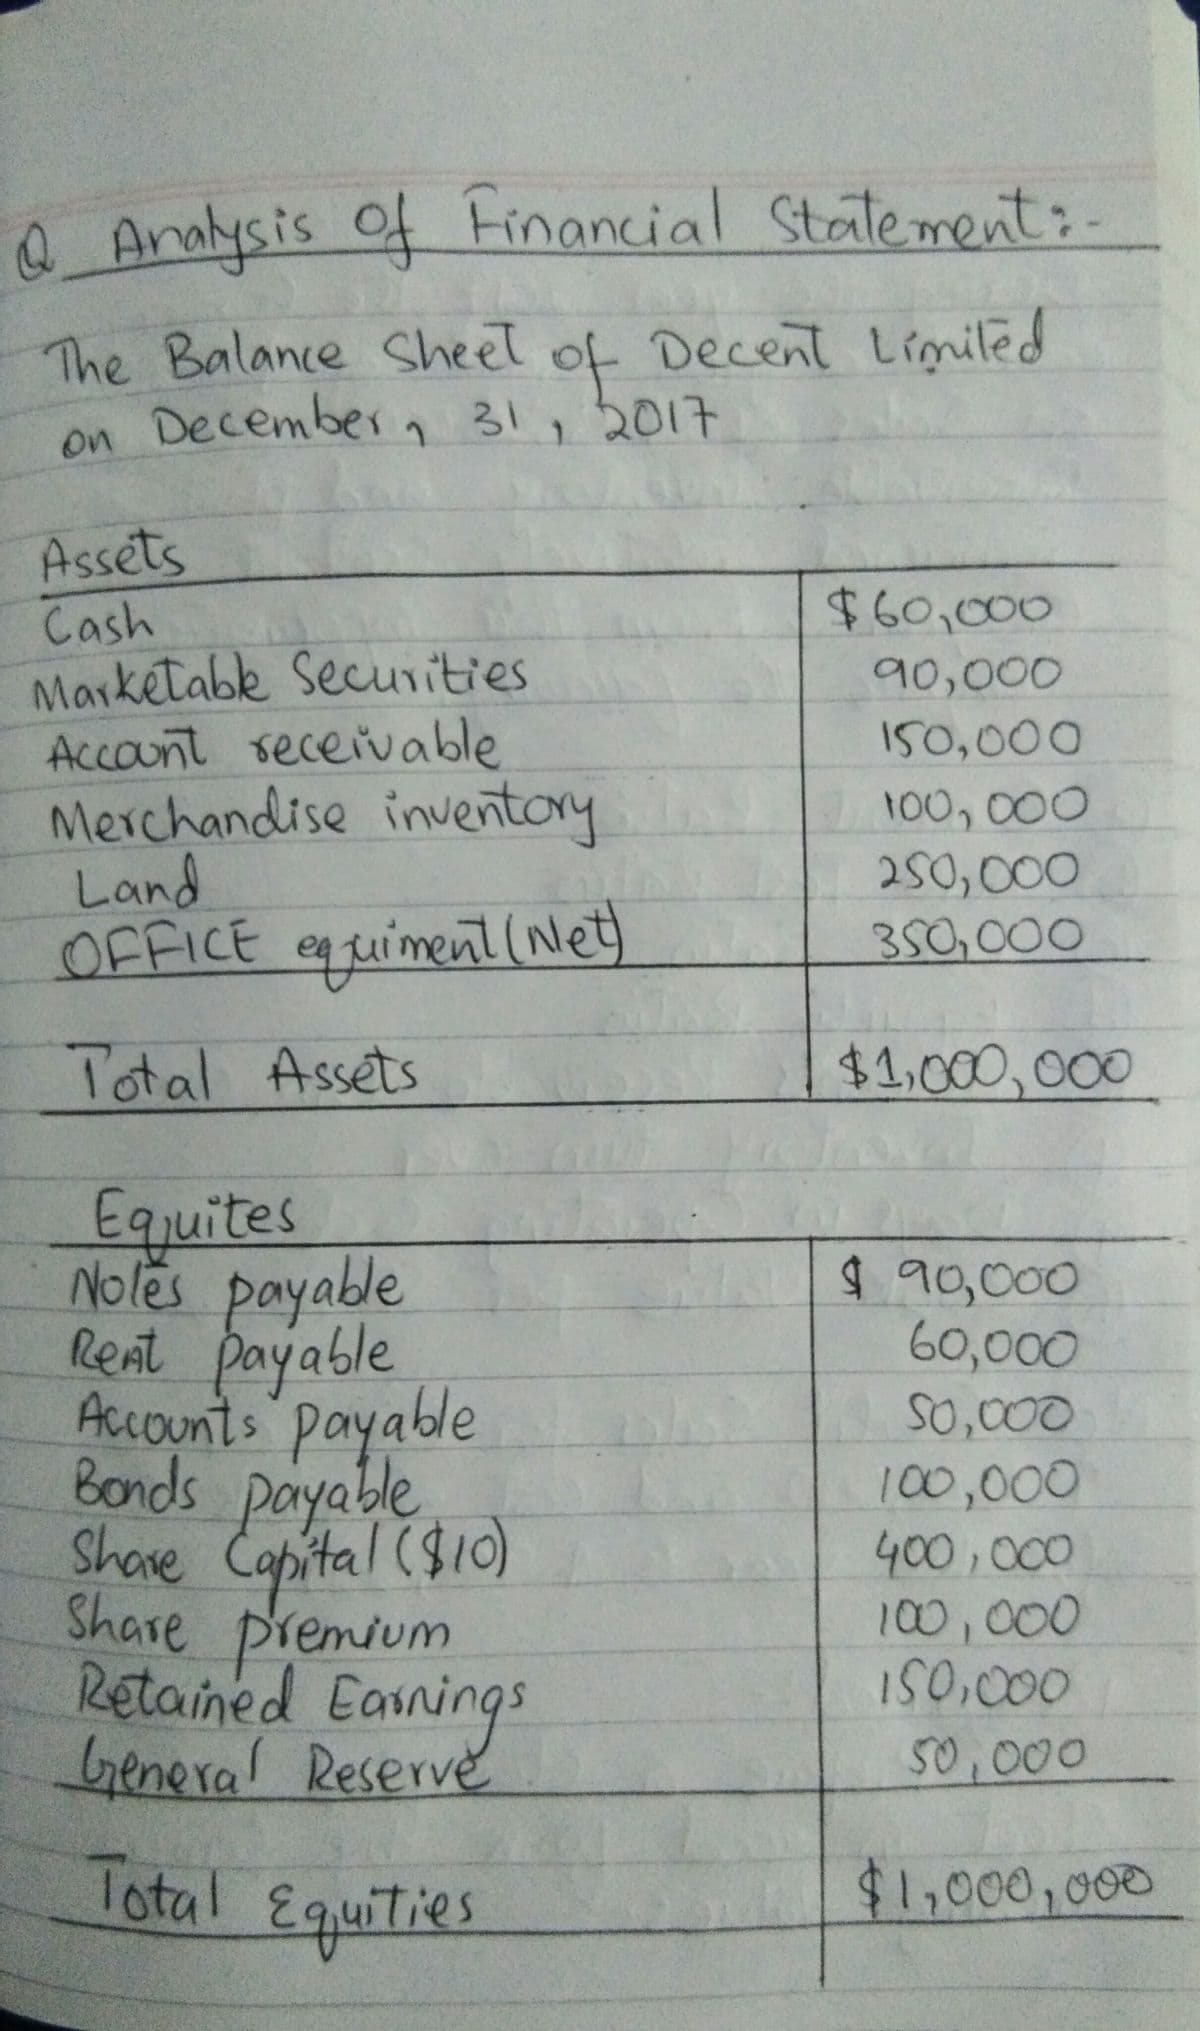 Q Analysis Of Financial Statement:-
The Balance Sheet of Decent Limited
on December, 31, 2017
Assets
Cash $60,000
Marketable Securities 90,000
Account receivable 150,000
Merchandise inventory 100,000
Land 250,000
OFFICE equiment (Net) 350,000
Total Assets $1,000,000
Equites
Notes payable $ 90,000
Rent payable 60,000
Accounts payable 50,000
Bonds payable 100,000
Share Capital ($10) 400,000
Share premium 100,000
Retained Earnings 150,000
General Reserve 50,000
Total Equities $1,000,000